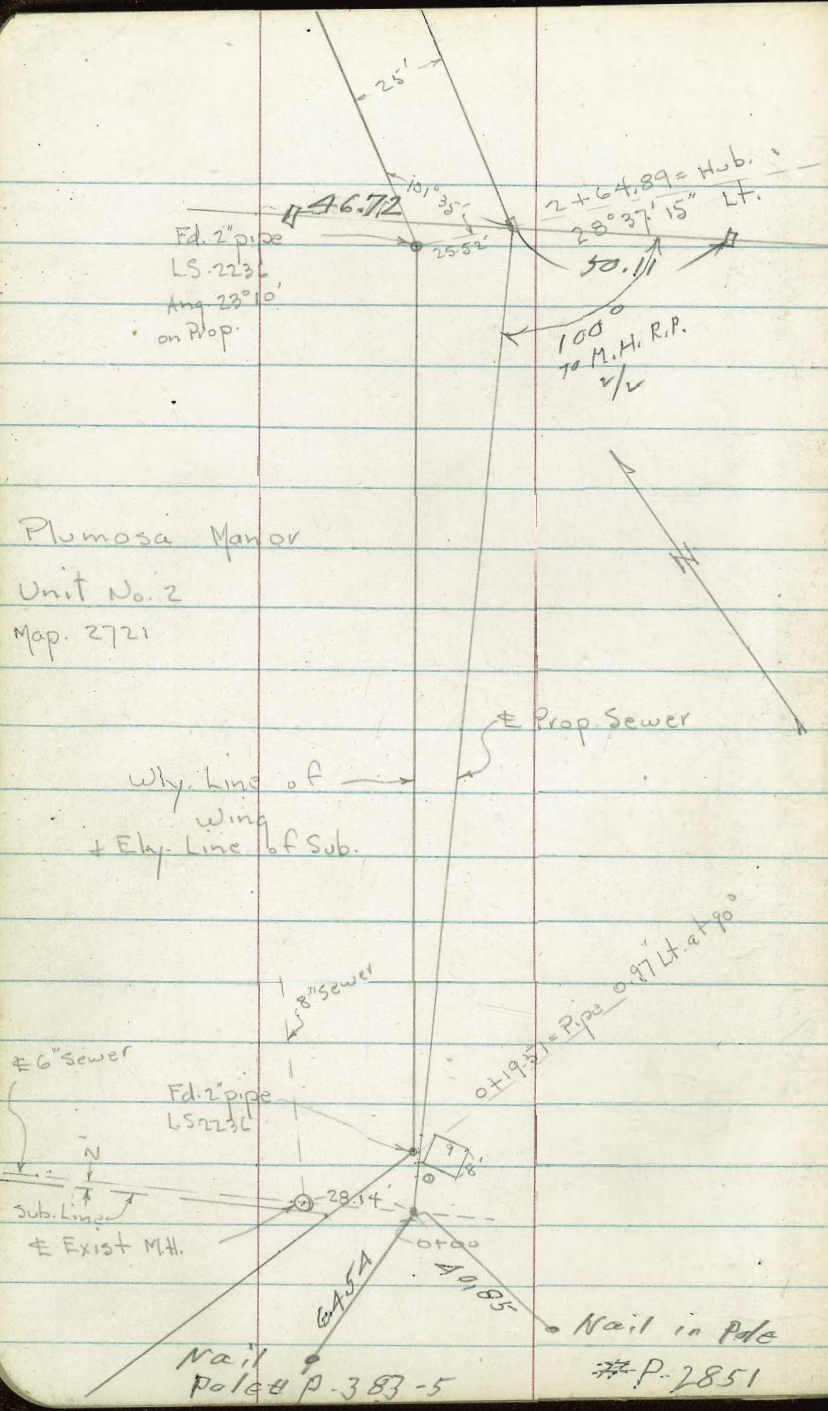 25'
101° 35'
46.72
2 + 64.89 = Hub.
28° 37' 15" Lt.
Fd. 2" pipe
L.S. 2236
Ang. 23° 10'
on Prop.
25.52'
50.11
100°
To M.H. R.P.
2/2
N
Plumosa Manor
Unit No. 2
Map. 2721
℄ Prop. Sewer
Wly. Line of
Wing
+ Ely. Line of Sub.
0+19.57 = Pipe 0.97 Lt. at 90°
8" Sewer
℄ 6" Sewer
Fd. 2" pipe
L.S. 2236
9
8'
28.14'
Sub. Line
℄ Exist M.H.
0+00
64.54
40.85
Nail
Pole # P-383-5
Nail in Pole
# P-2851